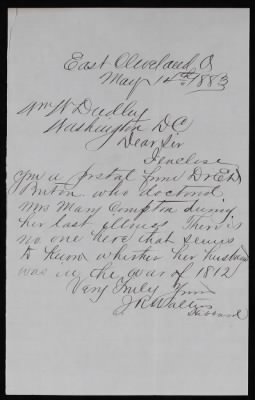 East Cleveland, O
May 14th 1883
Wm W Dudley
Washington DC
Dear Sir
I enclose
you a postal from Dr E D
Burton who doctored
Mrs Mary Compton during
her last illness There is
no one here that seems
to know whether her husband
was in the war of 1812
Very Truly Yours
J R Walters